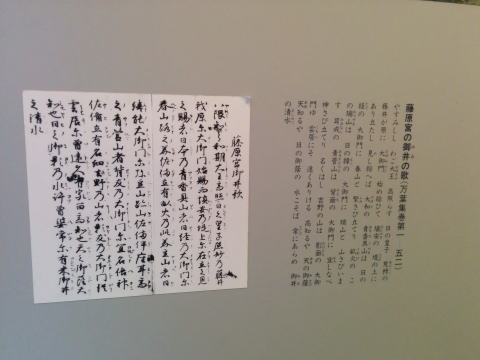 藤原宮の御井の歌(万葉集巻第一 五二)
やすみしし わご大王 高照らす 日の皇子 荒栲の
藤井が原に 大御門 始め給ひて 埴安の 堤の上に
あり立たし 見し給へば 大和の 青香具山は 日の
経の 大御門に 春山と 繁さび立てり 畝火の こ
の瑞山は 日の緯の 大御門に 瑞山と 山さびいま
す 耳成の 青菅山は 背面の 大御門に 宜しなべ
神さび立てり 名くはし 吉野の山は 影面の 大御
門ゆ 雲居にそ 遠くありける 高知るや 天の御蔭
天知るや 日の御蔭の 水こそば 常にあらめ 御井
の清水
藤原宮御井歌
八隅知之和期大王高照日之皇子麁妙乃藤井
我原尓大御門始賜而埴安乃堤上尓在立之見
之賜者日本乃青香具山者日経乃大御門尓
春山路之美佐備立有畝火乃此美豆山者日
緯能大御門尓弥豆山跡山佐備伊座耳為
之青菅山者背友乃大御門尓宜名倍神
佐備立有名細吉野乃山者影友乃大御門従
雲居尓曽遠久有家留高知也天之御蔭天
知也日之御影乃水許曽婆常尓有米御井
之清水